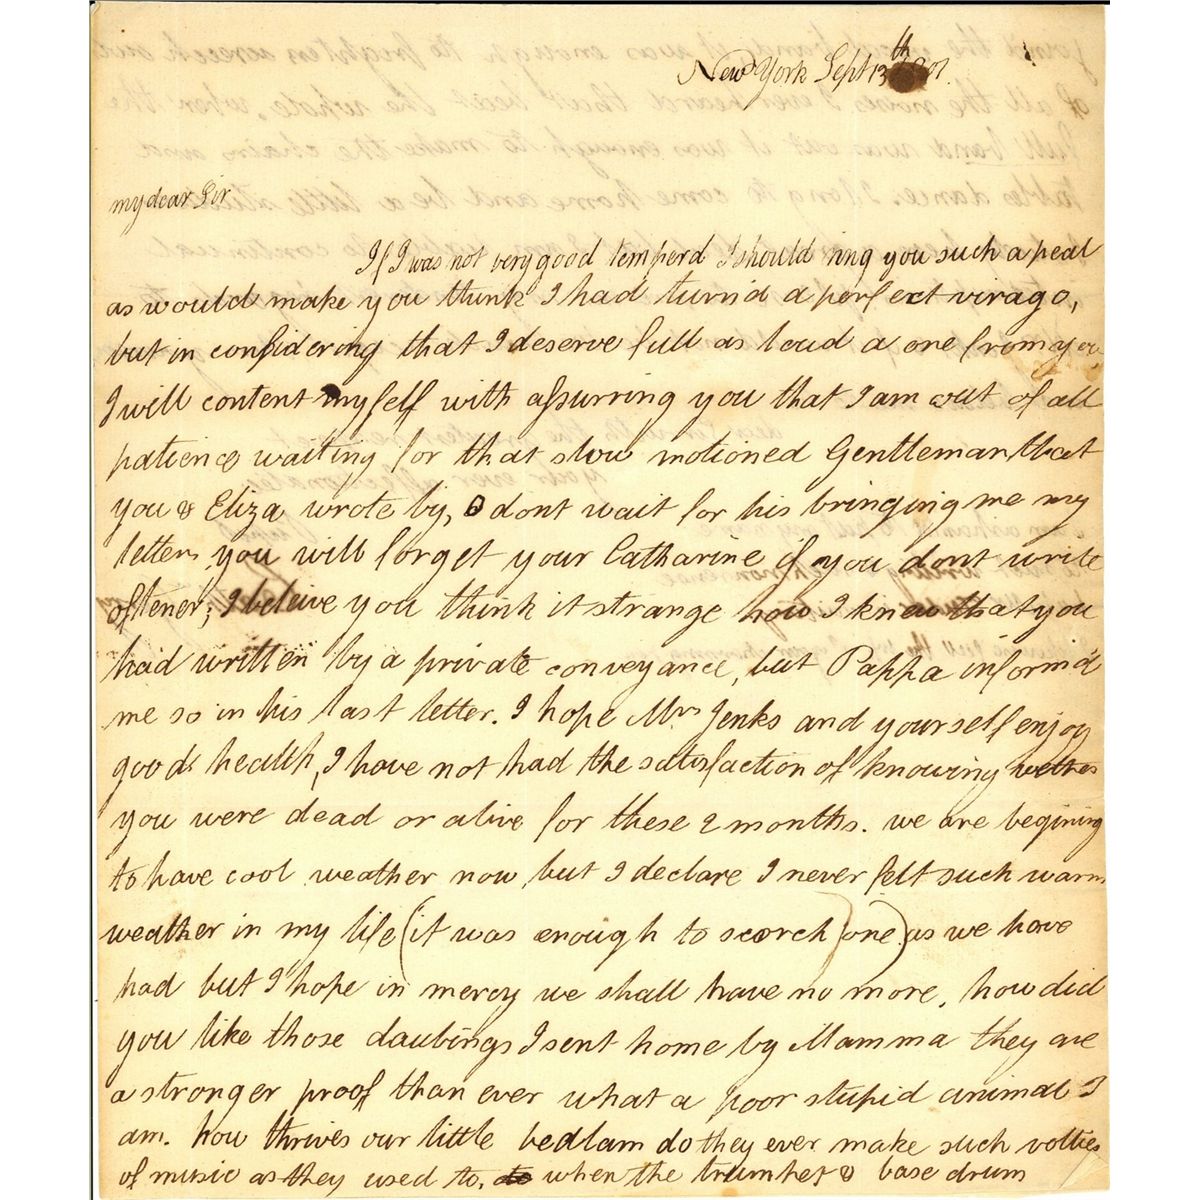 New York Sept 13th 1801.
my dear Sir
If I was not very good temperd I should ring you such a peal
as would make you think I had turn'd a perfect virago,
but in considering that I deserve full as loud a one from you
I will content myself with assurring you that I am out of all
patience waiting for that slow motioned Gentleman that
you & Eliza wrote by, dont wait for his bringing me my
letter, you will forget your Catharine if you dont write
oftener; I beleive you think it strange how I knew that you
had written by a private conveyance, but Pappa inform'd
me so in his last letter. I hope Mrs Jenks and yourself enjoy
good health, I have not had the satisfaction of knowing wether
you were dead or alive for these 2 months. we are begining
to have cool weather now but I declare I never felt such warm
weather in my life (it was enough to scorch one) as we have
had but I hope in mercy we shall have no more, how did
you like those daubings I sent home by Mamma they are
a stronger proof than ever what a poor stupid animal I
am. how thrives our little bedlam do they ever make such vollies
of music as they used to, when the trumpet & base drum